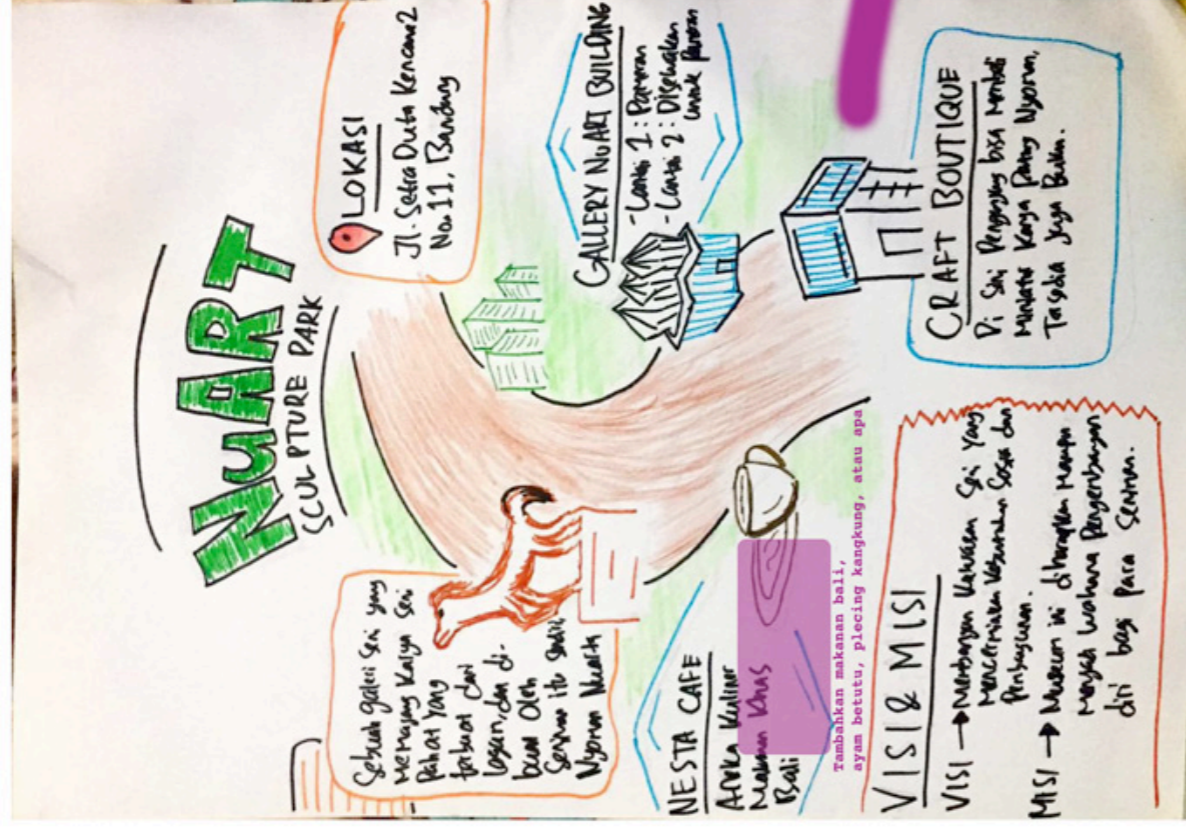 NuART
SCULPTURE PARK
LOKASI
Jl. Setra Duta Kencana 2
No. 11, Bandung
Sebuah galeri seni yang
memajang karya seni
Pahat yang
terbuat dari
logam, dan di-
buat oleh
Seniman itu sendiri
Nyoman Nuarta
GALLERY NuART BUILDING
- Lantai 1 : Pameran
- Lantai 2 : Disewakan
untuk Pameran
NESTA CAFE
Aneka Kuliner
Makanan Khas
Bali
Tambahkan makanan bali,
ayam betutu, plecing kangkung, atau apa
CRAFT BOUTIQUE
Di Sini Pengunjung bisa membeli
Miniatur Karya Patung Nyoman,
Tersedia juga Buku.
VISI & MISI
VISI → Membangun Kawasan Seni Yang
Mencerminkan Kebutuhan Sosial dan
Pembangunan.
MISI → Museum ini diharapkan mampu
menjadi wahana Pengembangan
diri bagi Para Seniman.